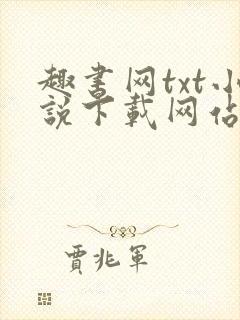 趣書网txt小
說下載网站
賈兆軍